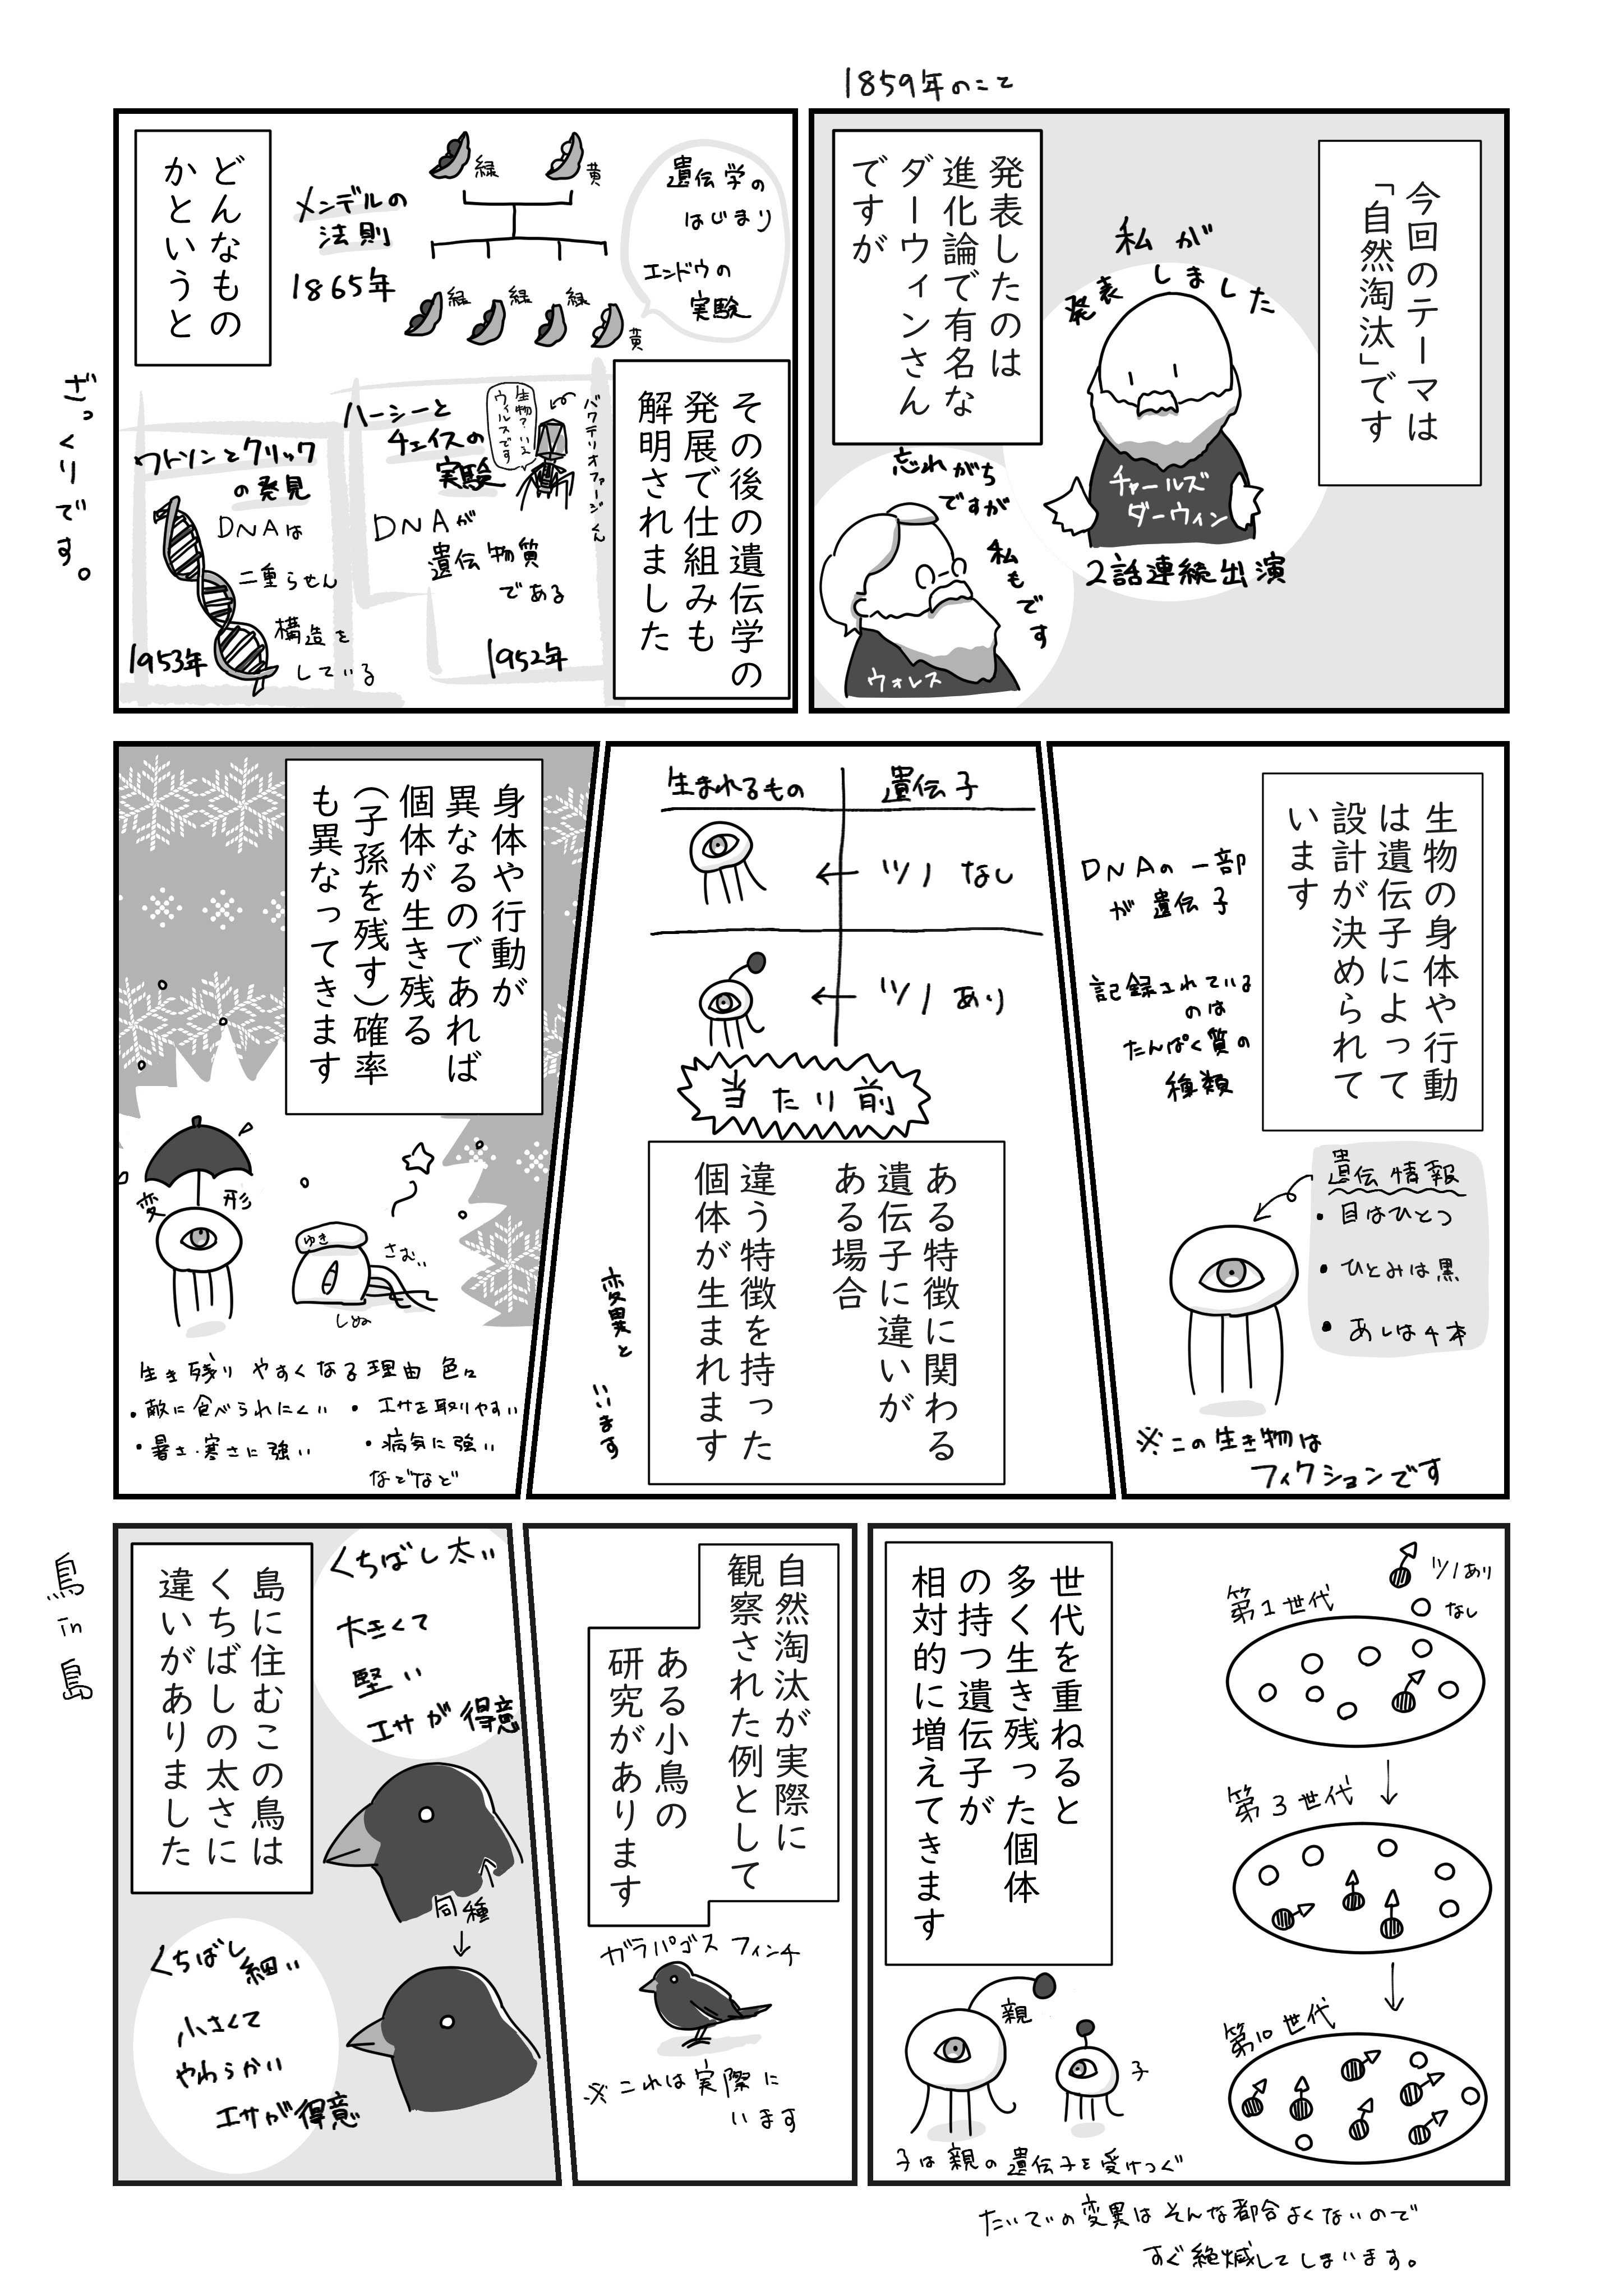 1859年のこと
今回のテーマは
「自然淘汰」です
私が
発表しました
チャールズ
ダーウィン
2話連続出演
発表したのは
進化論で有名な
ダーウィンさん
ですが
忘れがち
ですが
私もです
ウォレス
遺伝学の
はじまり
エンドウの
実験
緑
黄
緑
緑
緑
黄
メンデルの
法則
1865年
その後の遺伝学の
発展で仕組みも
解明されました
バクテリオファージくん
生物?いえ
ウイルスです
ハーシーと
チェイスの
実験
DNAが
遺伝物質
である
1952年
ワトソンとクリック
の発見
DNAは
二重らせん
構造を
している
1953年
どんなもの
かというと
ざっくりです。
生物の身体や行動
は遺伝子によって
設計が決められて
います
DNAの一部
が遺伝子
記録されている
のは
たんぱく質の
種類
遺伝情報
・目はひとつ
・ひとみは黒
・あしは4本
※この生き物は
フィクションです
遺伝子
生まれるもの
ツノ なし
ツノ あり
当たり前
ある特徴に関わる
遺伝子に違いが
ある場合
違う特徴を持った
個体が生まれます
変異と
いいます
身体や行動が
異なるのであれば
個体が生き残る
(子孫を残す)確率
も異なってきます
変形
ゆき
さむ..
しぬ
生き残りやすくなる理由 色々
・敵に食べられにくい
・エサを取りやすい
・暑さ・寒さに強い
・病気に強い
などなど
ツノあり
なし
第1世代
第3世代
第10世代
世代を重ねると
多く生き残った個体
の持つ遺伝子が
相対的に増えてきます
親
子
子は親の遺伝子を受けつぐ
たいていの変異はそんな都合よくないので
すぐ絶滅してしまいます。
自然淘汰が実際に
観察された例として
ある小鳥の
研究があります
ガラパゴスフィンチ
※これは実際に
います
くちばし太い
大きくて
堅い
エサが得意
島に住むこの鳥は
くちばしの太さに
違いがありました
同種
くちばし
細い
小さくて
やわらかい
エサが得意
鳥in島